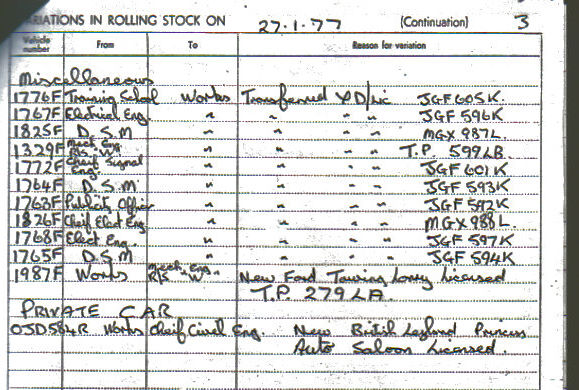 VARIATIONS IN ROLLING STOCK ON 27.1.77 (Continuation) 3
Vehicle number From To Reason for variation
Miscellaneous
1776F Training School Works Transferred JGF 605K
1767F Electrical Eng. " " " " JGF 596K
1825F D.S.M " " " " MGX 987L.
1329F Mech. Eng. R/S. W " " " " T.P. 599LB
1772F Cheif Signal Eng. " " " " JGF 601K
1764F D.S.M " " " " JGF 593K
1763F Publicity Officer " " " " JGF 592K
1826F Cheif Elect Eng " " " " MGX 988L.
1768F Elect Eng. " " " " JGF 597K
1765F D.S.M " " " " JGF 594K
1987F Works Mech. Eng R/S W New Ford Towing Lorry Licensed
T.P. 279LA.
PRIVATE CAR
OJD584R Works Cheif Civil Eng. New British Leyland Princess
Auto Saloon Licensed.